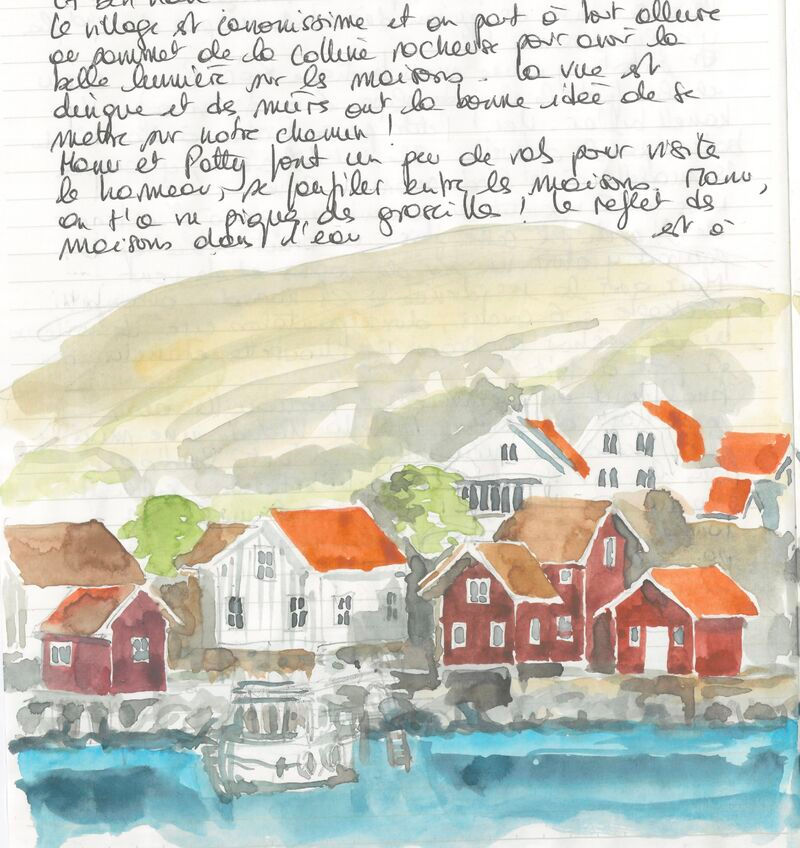 Le village est canonissime et on part à tout allure
au sommet de la colline rocheuse pour avoir la
belle lumière sur les maisons. La vue est
dingue et des mûrs ont la bonne idée de se
mettre sur notre chemin !
Manu et Patty font un peu de rab pour visiter
le hameau, se faufiler entre les maisons. Manu,
on t'a vu piquer des groseilles ! Le reflet des
maisons dans l'eau est à